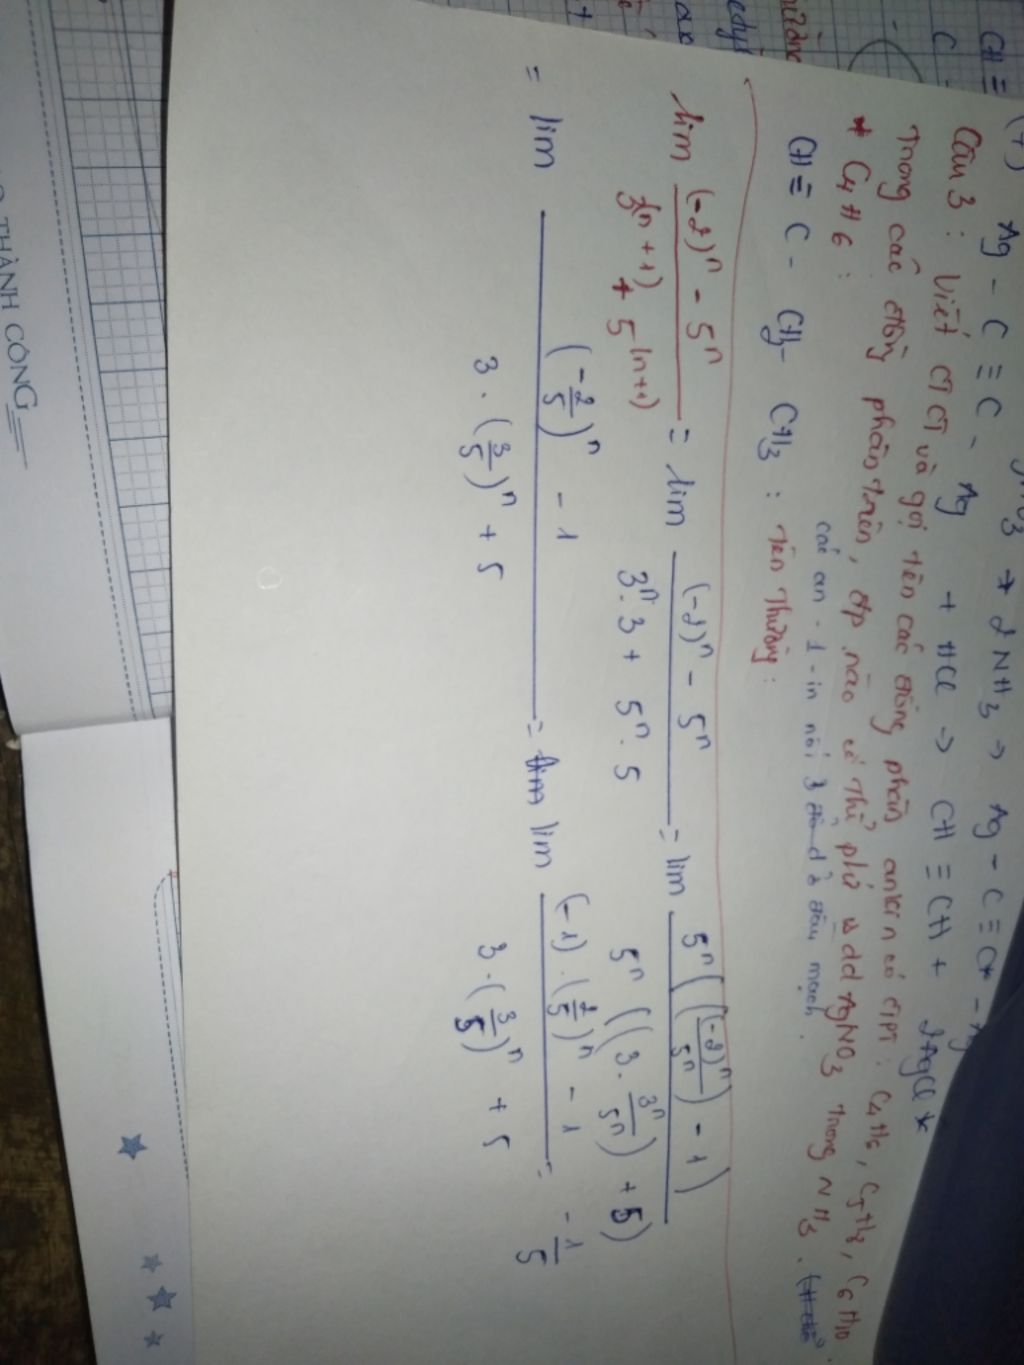 Ag - C ≡ C - Ag + HCl → CH ≡ CH + 2AgCl
Câu 3: Viết CTCT và gọi tên các đồng phân ankin có CTPT: C4H6, C5H8, C6H10
Trong các đồng phân trên, đp nào có thể phứ vs dd AgNO3 trong NH3.
* C4H6:
các an-1-in nối 3 ở đầu mạch.
CH ≡ C - CH2 - CH3 : Tên Thường:
lim ((-2)^n - 5^n)/(3^(n+1) + 5^(n+1)) = lim ((-2)^n - 5^n)/(3^n.3 + 5^n.5) = lim (5^n(((-2)^n/5^n) - 1))/(5^n((3.3^n/5^n) + 5))
= lim ((-2/5)^n - 1)/(3.(3/5)^n + 5) = lim ((-1).(2/5)^n - 1)/(3.(3/5)^n + 5) = -1/5
THÀNH CÔNG